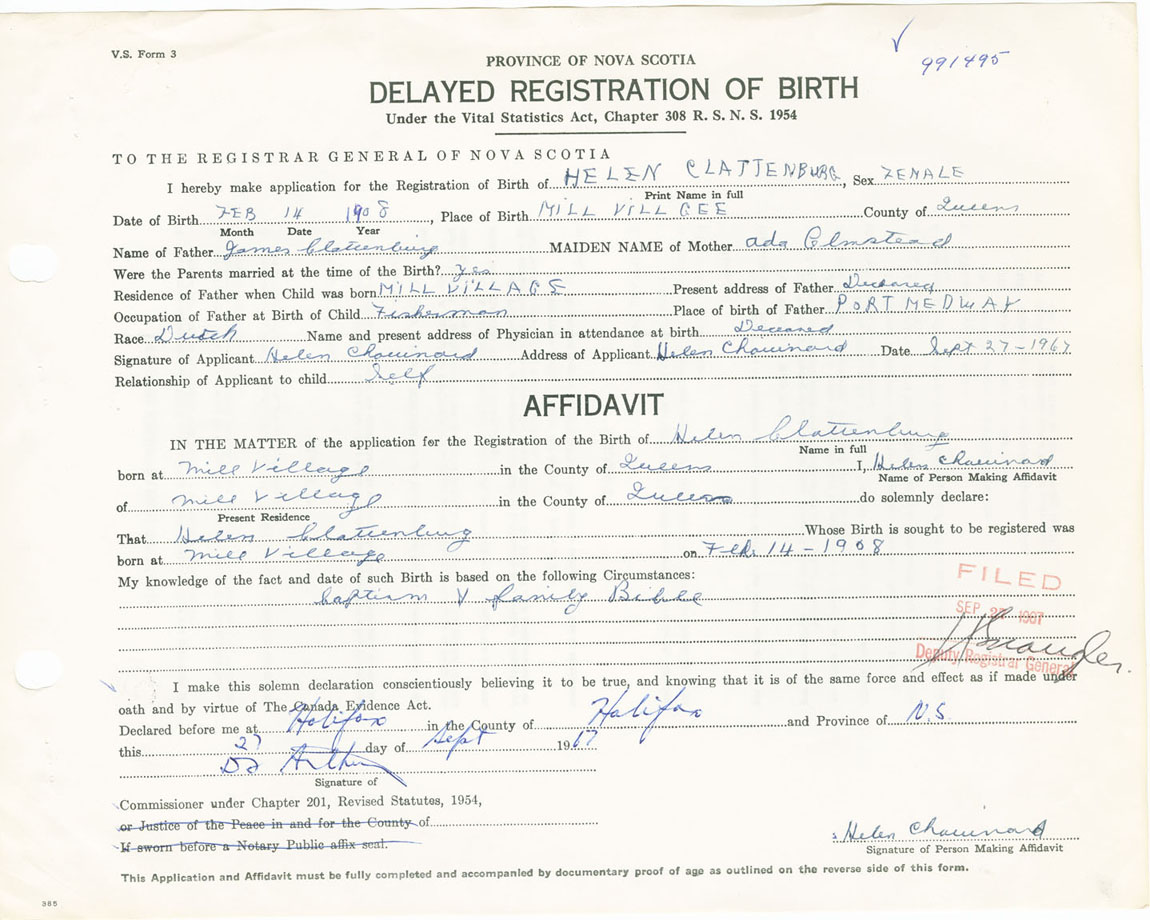 V.S. Form 3
991495
PROVINCE OF NOVA SCOTIA
DELAYED REGISTRATION OF BIRTH
Under the Vital Statistics Act, Chapter 308 R. S. N. S. 1954
TO THE REGISTRAR GENERAL OF NOVA SCOTIA
I hereby make application for the Registration of Birth of HELEN CLATTENBURG, Sex FEMALE
Print Name in full
Date of Birth FEB 14 1908, Place of Birth MILL VILLGEE County of Queens
Month Date Year
Name of Father James Clattenburg MAIDEN NAME of Mother Ada Olmstead
Were the Parents married at the time of the Birth? Yes
Residence of Father when Child was born MILL VILLAGE Present address of Father Deceased
Occupation of Father at Birth of Child Fisherman Place of birth of Father PORT MEDWAY
Race Dutch Name and present address of Physician in attendance at birth Deceased
Signature of Applicant Helen Chouinard Address of Applicant Helen Chouinard Date Sept 27-1967
Relationship of Applicant to child Self
AFFIDAVIT
IN THE MATTER of the application for the Registration of the Birth of Helen Clattenburg
Name in full
born at Mill Village in the County of Queens I, Helen Chouinard
Name of Person Making Affidavit
of Mill Village in the County of Queens do solemnly declare:
Present Residence
That Helen Clattenburg Whose Birth is sought to be registered was
born at Mill Village on Feb. 14-1908
My knowledge of the fact and date of such Birth is based on the following Circumstances:
baptism & family Bible
FILED
SEP 27 1967
Deputy Registrar General
I make this solemn declaration conscientiously believing it to be true, and knowing that it is of the same force and effect as if made under
oath and by virtue of The Canada Evidence Act.
Declared before me at Halifax in the County of Halifax and Province of N.S.
this 27 day of Sept 1967
Signature of
Commissioner under Chapter 201, Revised Statutes, 1954,
or Justice of the Peace in and for the County of
If sworn before a Notary Public affix seal.
Helen Chouinard
Signature of Person Making Affidavit
This Application and Affidavit must be fully completed and accompanied by documentary proof of age as outlined on the reverse side of this form.
385